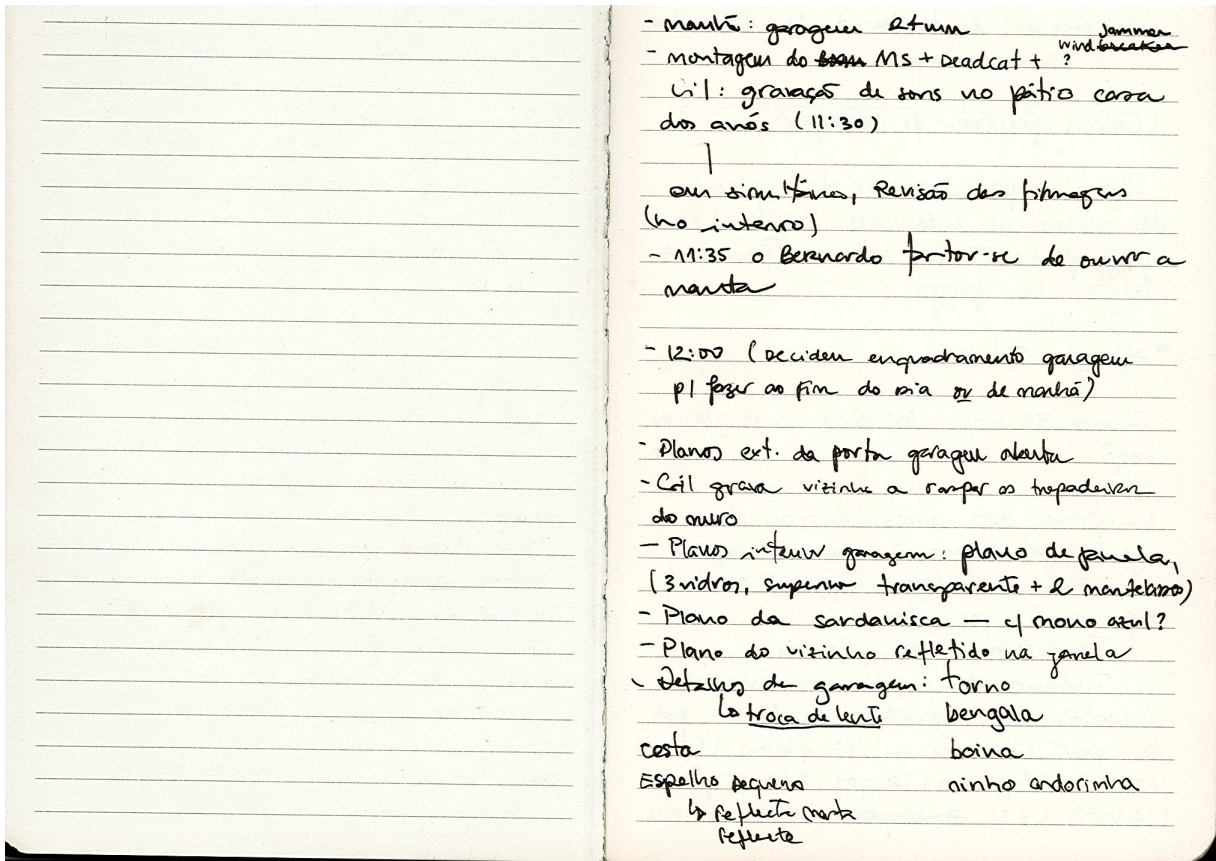 - manhã: garagem 24mm
- montagem do MS + Deadcat + ? wind breaker jammer
Gil: gravação de sons no pátio casa
dos avós (11:30)
em simultâneo, Revisão das filmagens
(no interno)
- 11:35 o Bernardo fartou-se de ouvir a
manta
- 12:00 (Decidem enquadramento garagem
p/ fazer ao fim do dia ou de manhã)
- Planos ext. da porta garagem aberta
- Gil grava vizinho a raspar as trepadeiras
do muro
- Planos interior garagem: plano de janela,
(3 vidros, superior transparente + 2 martelados)
- Plano da sardanisca — c/ mono azul?
- Plano do vizinho refletido na janela
- Detalhes da garagem: torno
↳ troca de lente bengala
cesta boina
Espelho pequeno ninho andorinha
↳ reflecte
reflecte